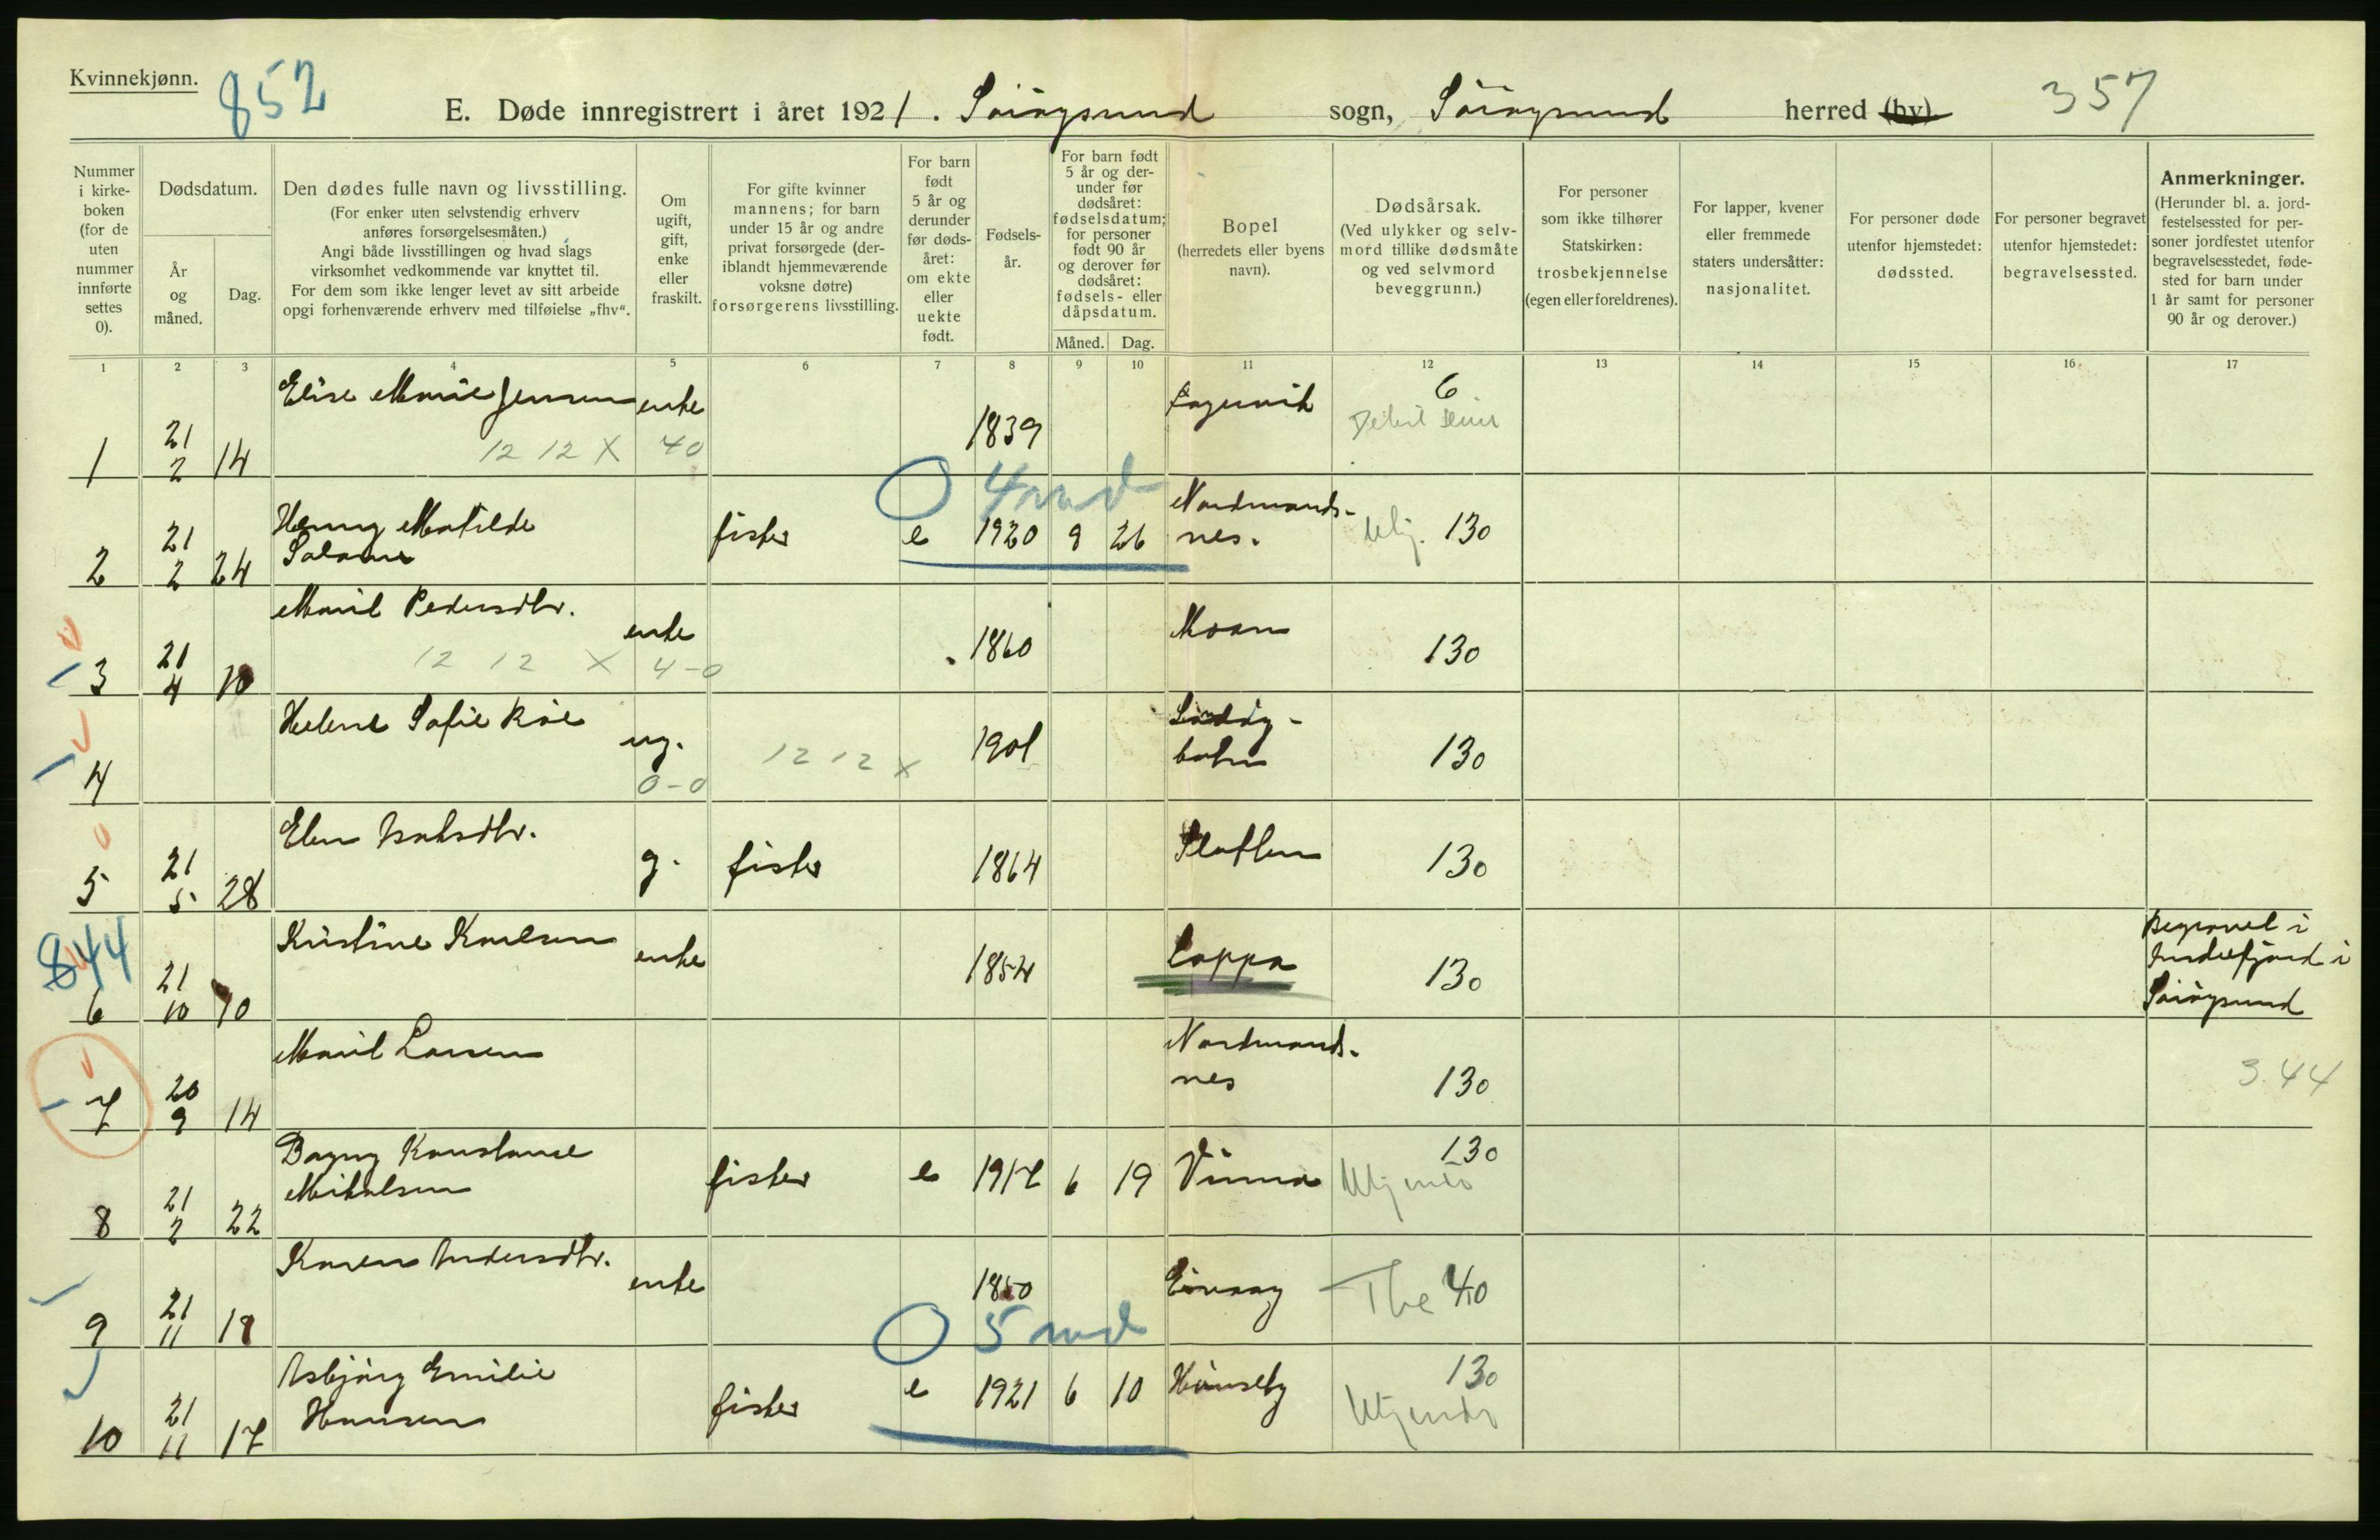 Kvinnekjønn.
852
E. Døde innregistrert i året 1921. Sörøysund sogn, Sörøysund herred (by).
357
Nummer i kirke-boken (for de uten nummer innførte settes 0).
Dødsdatum.
År og måned.
Dag.
Den dødes fulle navn og livsstilling.
(For enker uten selvstendig erhverv anføres forsørgelsesmåten.)
Angi både livsstillingen og hvad slags virksomhet vedkommende var knyttet til.
For dem som ikke lenger levet av sitt arbeide opgi forhenværende erhverv med tilføielse „fhv“.
Om ugift, gift, enke eller fraskilt.
For gifte kvinner mannens; for barn under 15 år og andre privat forsørgede (deriblandt hjemmeværende voksne døtre) forsørgerens livsstilling.
For barn født 5 år og derunder før dødsåret: om ekte eller uekte født.
Fødsels-år.
For barn født 5 år og derunder før dødsåret: fødselsdatum; for personer født 90 år og derover før dødsåret: fødsels- eller dåpsdatum.
Måned. Dag.
Bopel (herredets eller byens navn).
Dødsårsak.
(Ved ulykker og selvmord tillike dødsmåte og ved selvmord beveggrunn.)
For personer som ikke tilhører Statskirken: trosbekjennelse (egen eller foreldrenes).
For lapper, kvener eller fremmede staters undersåtter: nasjonalitet.
For personer døde utenfor hjemstedet: dødssted.
For personer begravet utenfor hjemstedet: begravelsessted.
Anmerkninger.
(Herunder bl. a. jordfestelsessted for personer jordfestet utenfor begravelsesstedet, fødested for barn under 1 år samt for personer 90 år og derover.)
1 2 3 4 5 6 7 8 9 10 11 12 13 14 15 16 17
1 21 2 14 Elise Marie Jensen enke 1839 6
12 12 X 40
0 4 md
2 21 2 24 Henny Matilde fisker e 1920 9 26 Nordmands-nes. 130
3 21 4 10 Marit Pedersdtr. enke 1860 130
12 12 X 4-0
4 Helene Sofie ug. 1901 130
0-0 12 12 X
5 21 5 28 Elen Isaksdtr. g. fisker 1864 130
844
6 21 10 10 Kristine Karlsen enke 1854 Loppa 130 Begravet i
i
Sörøysund
7 20 9 14 Marit Larsen Nordmands-nes 130
344
8 21 2 22 Dagny Konstanse Mikalsen fisker e 1917 6 19 130
9 21 11 Karen Andersdtr. enke 40
0 5 md
10 21 11 17 Asbjørg Emilie Hansen fisker e 1921 6 10 Hønseby 130